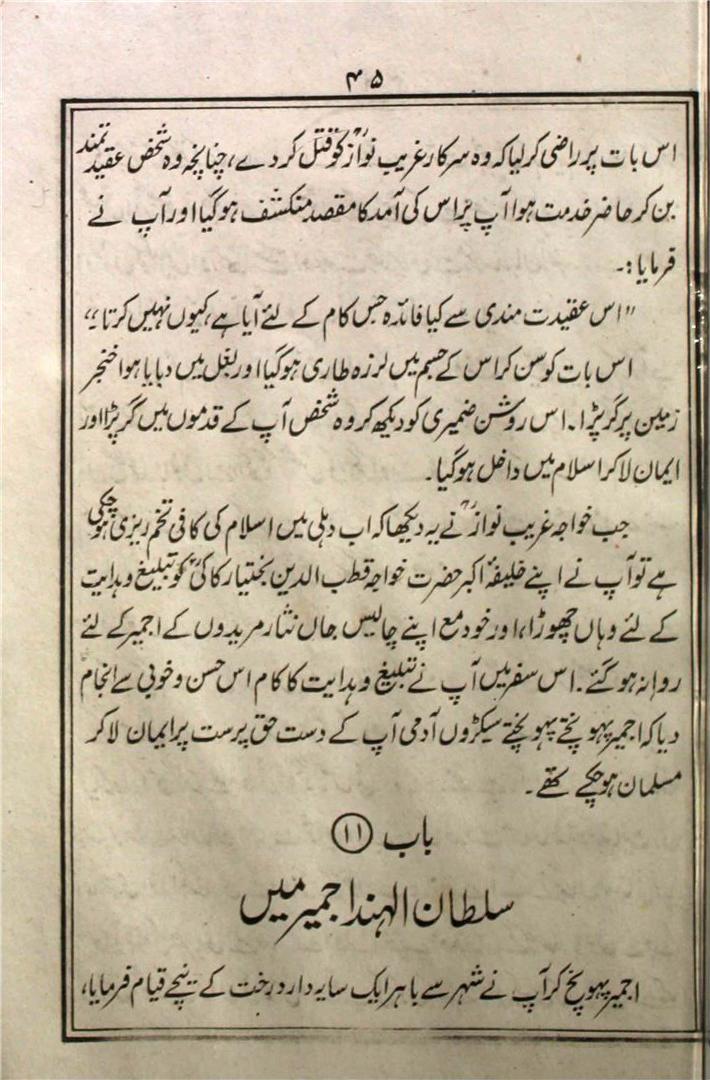 ۴۵
اس بات پر راضی کر لیا کہ وہ سرکار غریب نوازؒ کو قتل کر دے، چنانچہ وہ شخص عقیدتمند
بن کر حاضر خدمت ہوا آپ پر اس کی آمد کا مقصد منکشف ہو گیا اور آپ نے
فرمایا:۔
"اس عقیدت مندی سے کیا فائدہ جس کام کے لئے آیا ہے، کیوں نہیں کرتا"
اس بات کو سن کر اس کے جسم میں لرزہ طاری ہو گیا اور بغل میں دبایا ہوا خنجر
زمین پر گر پڑا۔ اس روشن ضمیری کو دیکھ کر وہ شخص آپ کے قدموں میں گر پڑا اور
ایمان لا کر اسلام میں داخل ہو گیا۔
جب خواجہ غریب نوازؒ نے یہ دیکھا کہ اب دہلی میں اسلام کی کافی تخم ریزی ہو چکی
ہے تو آپ نے اپنے خلیفۂ اکبر حضرت خواجہ قطب الدین بختیار کاکیؒ کو تبلیغ و ہدایت
کے لئے وہاں چھوڑا، اور خود مع اپنے چالیس جاں نثار مریدوں کے اجمیر کے لئے
روانہ ہو گئے۔ اس سفر میں آپ نے تبلیغ و ہدایت کا کام اس حسن و خوبی سے انجام
دیا کہ اجمیر پہونچتے پہونچتے سیکڑوں آدمی آپ کے دست حق پرست پر ایمان لا کر
مسلمان ہو چکے تھے۔
باب ۱۱
سلطان الہند اجمیر میں
اجمیر پہونچ کر آپ نے شہر سے باہر ایک سایہ دار درخت کے نیچے قیام فرمایا،